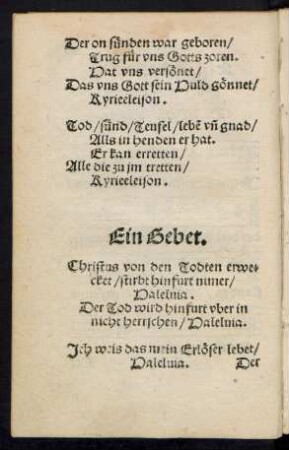 Der on sünden war geboren/
Trug für vns Gotts zoren.
Hat vns versönet/
Das vns Gott sein Huld gönnet/
Kyrieeleison.
Tod/sünd/Teufel/lebē vñ gnad/
Alls in henden er hat.
Er kan erretten/
Alle die zu jm tretten/
Kyrieeleison.
Ein Gebet.
Christus von den Todten erwe-
cket/stirbt hinfurt nimer/
Haleluia.
Der Tod wird hinfurt vber in
nicht herrschen/Haleluia.
Ich weis das mein Erlöser lebet/
Haleluia. Der